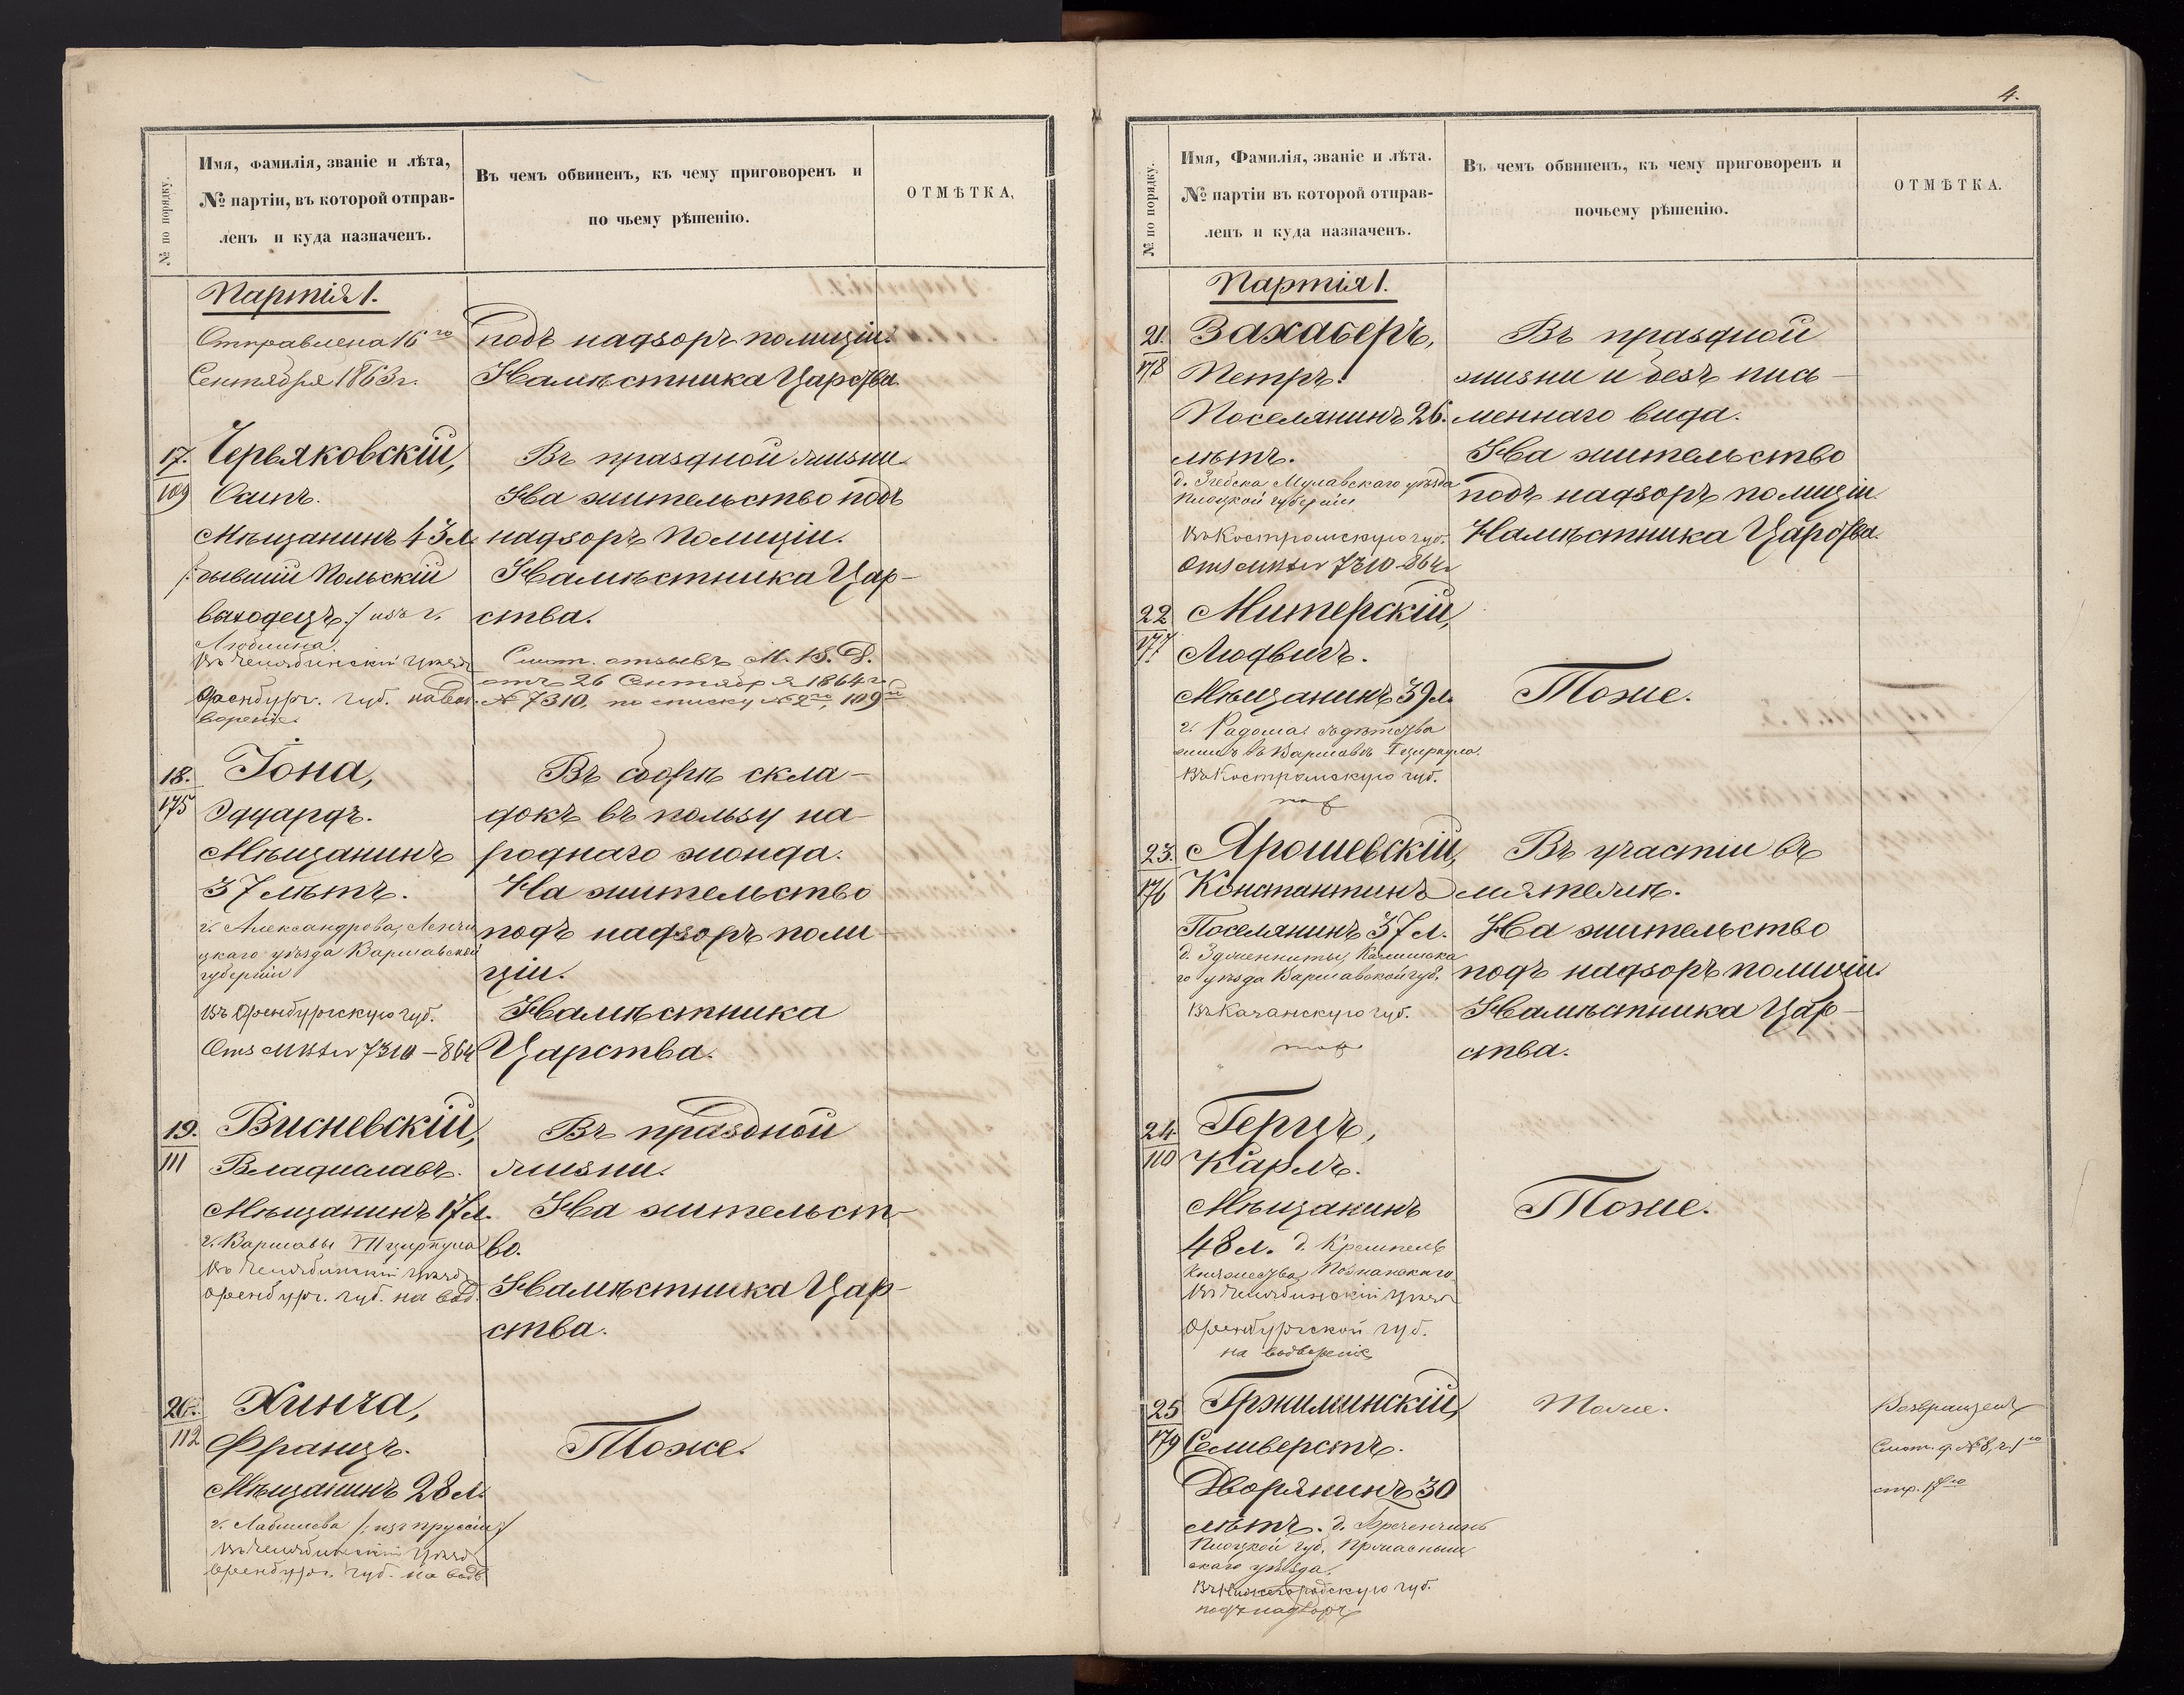 № по порядку.
Имя, фамилія, званіе и лѣта,
№ партіи, въ которой отправ-
ленъ и куда назначенъ.
Въ чемъ обвиненъ, къ чему приговоренъ и
по чьему рѣшенію.
ОТМѢТКА,
Партія 1.
Отправлена 16го
Сентября 1863 г.
подъ надзоръ полиціи.
Намѣстника Царства
17.
109
Червяковскій,
Осипъ.
Мѣщанинъ 43 л
/:бывшій Польскій
выходецъ:/ изъ г.
Люблина.
Въ Челябинскій уѣздъ
Оренбург. губ. на вод-
вореніе.
Въ праздной жизни
На жительство подъ
надзоръ Полиціи.
Намѣстника Цар-
ства.
Смот. отзывъ М. В. Д.
отъ 26 Сентября 1864 г.
№ 7310, по списку № 2го, 109й
18.
175
Іона,
Эдуардъ.
Мѣщанинъ
37 лѣтъ.
г. Александрова, Ленчи
цкаго уѣзда Варшавской
губерніи
Въ Оренбургскую губ.
7310 – 864
Въ сборѣ скла-
докъ въ пользу на-
роднаго жонда.
На жительство
подъ надзоръ поли
ціи.
Намѣстника
Царства.
19.
111
Висневскій,
Владиславъ.
Мѣщанинъ 17 л.
г. Варшавы VII циркула
Въ Челябинскій уѣздъ
Оренбург. губ. на вод.
Въ праздной
жизни.
На жительст-
во.
Намѣстника Цар-
ства.
20.
112
Хинча,
Францъ.
Мѣщанинъ 28 л.
г. Лабишева /:изъ Пруссіи:/
Въ Челябинскій уѣздъ
Оренбург. губ. на водв
Тоже.
4.
№ по порядку.
Имя, Фамилія, званіе и лѣта.
№ партіи въ которой отправ-
ленъ и куда назначенъ.
Въ чемъ обвиненъ, къ чему приговоренъ и
почьему рѣшенію.
ОТМѢТКА.
Партія 1.
21.
178
Захаберъ,
Петръ.
Поселянинъ 26.
лѣтъ.
Млавскаго уѣзда
Плоцкой губерніи
Въ Костромскую губ.
7310 – 864 г
Въ праздной
жизни и безъ пись-
меннаго вида.
На жительство
подъ надзоръ полиціи
Намѣстника Царства.
22
177
Митерскій,
Людвигъ.
Мѣщанинъ 39 л.
г. Радома, съ дѣтства
жилъ въ Варшавѣ I циркула.
Въ Костромскую губ.
Тоже.
23.
176
Ярошевскій,
Константинъ
Поселянинъ 37 л.
Калишска
го уѣзда Варшавской губ.
Въ Казанскую губ.
Въ участіи въ
мятежѣ.
На жительство
подъ надзоръ полиціи.
Намѣстника Цар-
ства.
24
110
Герцъ,
Карлъ.
Мѣщанинъ
48 л. д. Кремпель
Княжества Познанскаго
Въ Челябинскій уѣздъ
Оренбургской губ.
на водвореніе
Тоже.
25
179
Гржилминскій,
Селиверстъ.
Дворянинъ 30
лѣтъ.
Плоцкой губ. Пржасныш
скаго уѣзда.
Въ Нижегородскую губ.
подъ надзоръ
Тоже.
Возвращенъ
Смот. д. № 8, ч. 1ю
стр. 17ю